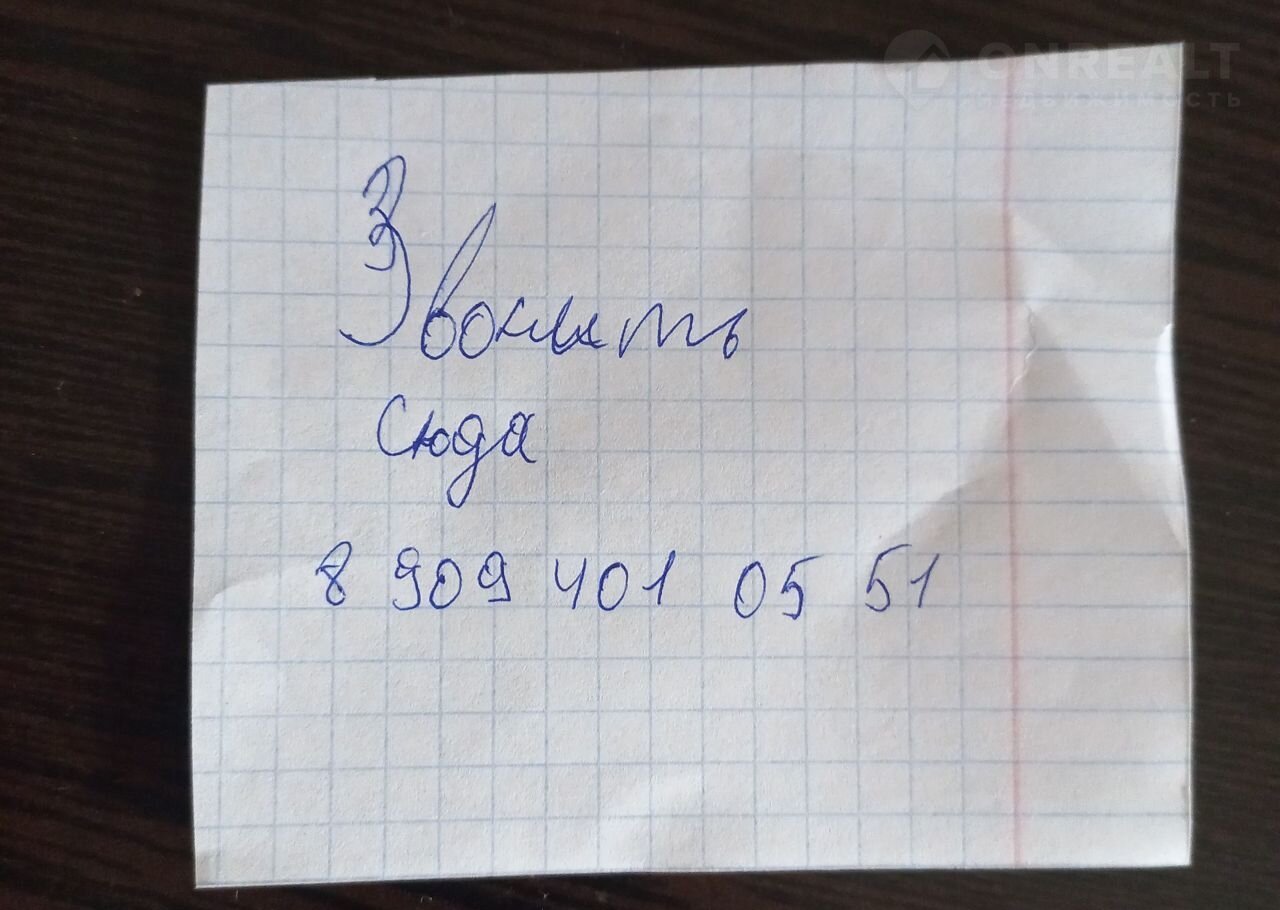 ONREALT
НЕДВИЖИМОСТЬ
Звонить
сюда
8 909 401 05 51